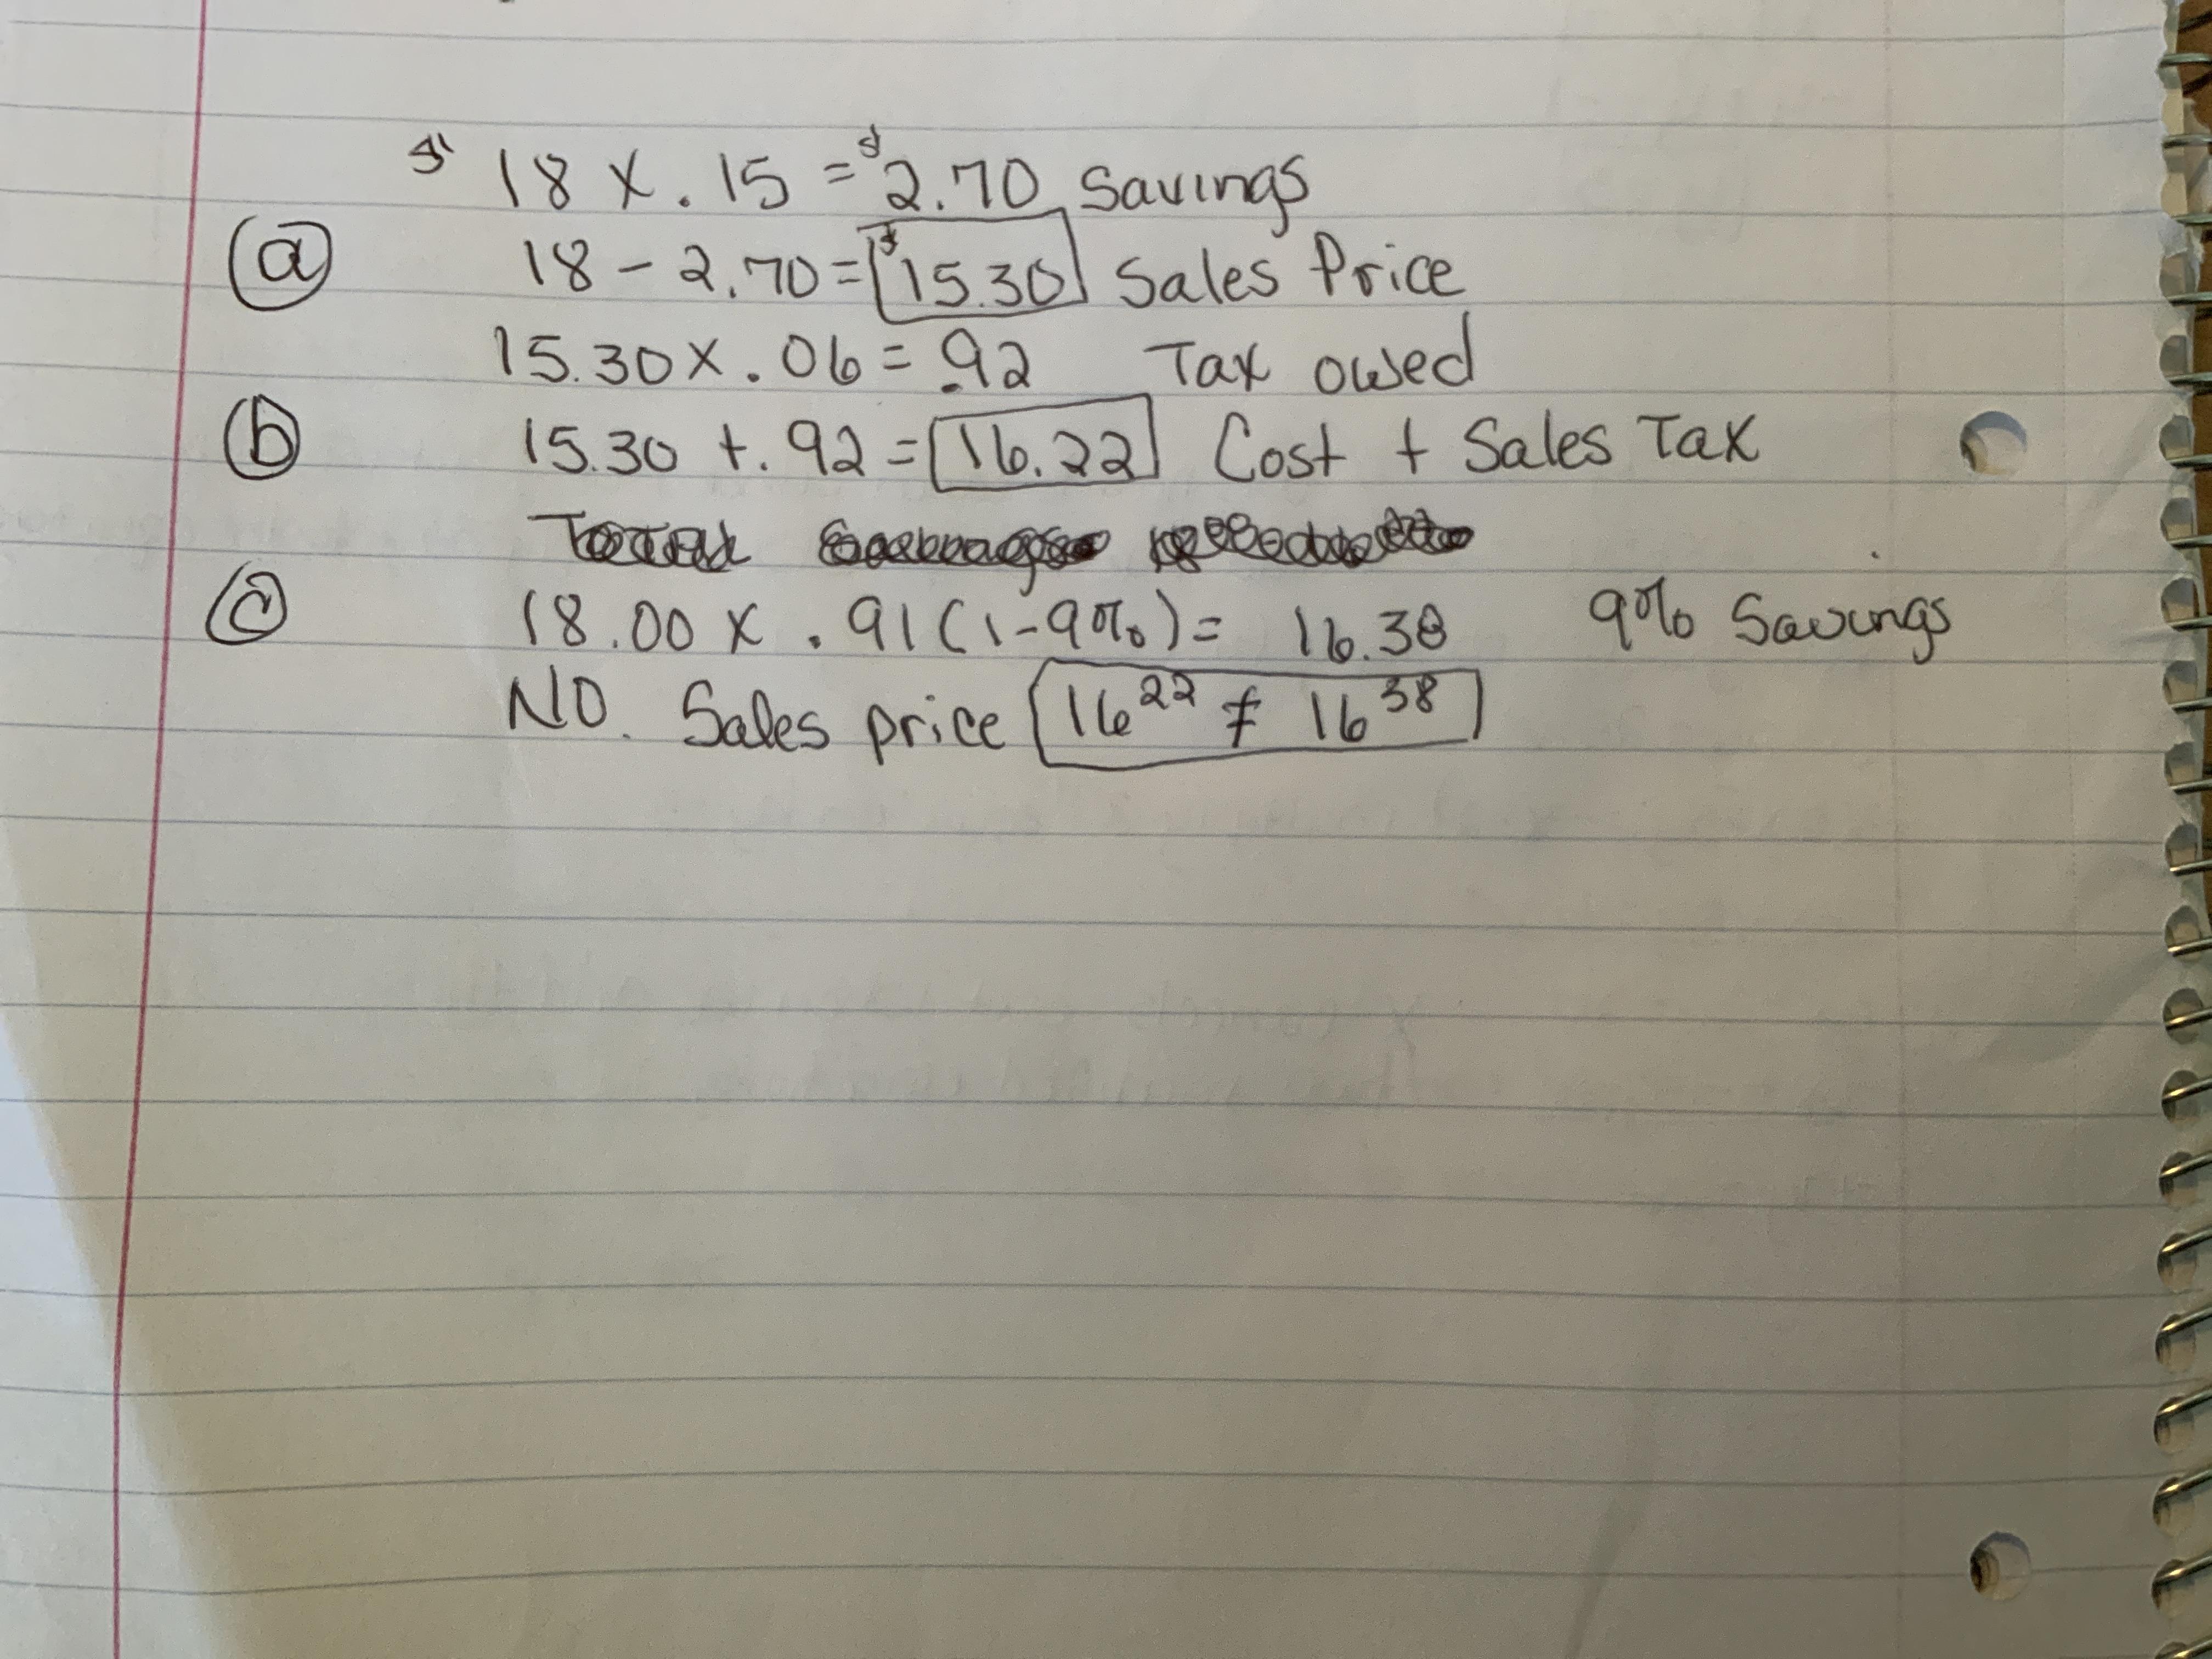 $ 18 x .15 = $2.70 Savings
(a) 18 - 2.70 = $15.30 Sales Price
15.30 x .06 = .92 Tax owed
(b) 15.30 + .92 = 16.22 Cost + Sales Tax
Total
(c) 18.00 x .91 (1-9%) = 16.38 9% Savings
NO. Sales price 16²² ≠ 16³⁸